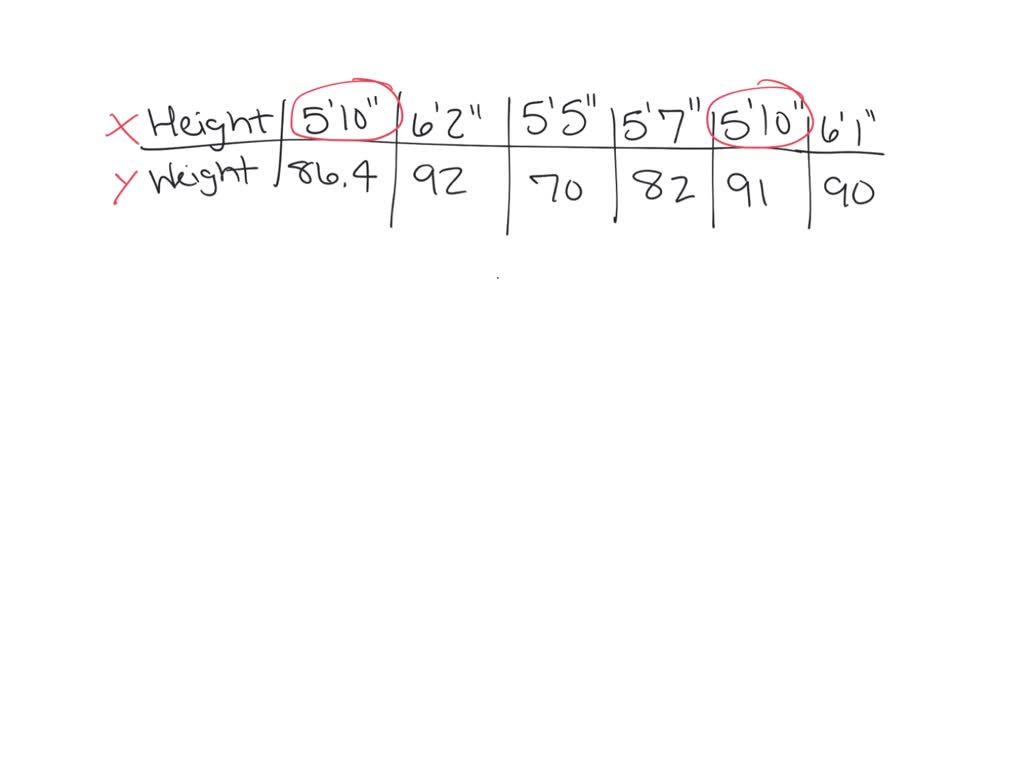 X Height 5'10" 6'2" 5'5" 5'7" 5'10" 6'1"
y Weight 86.4 92 70 82 91 90